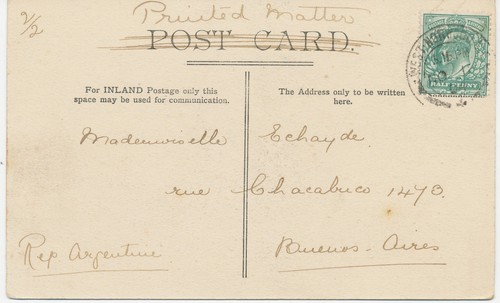 2/2
Printed Matter
POST CARD.
For INLAND Postage only this
space may be used for communication.
The Address only to be written
here.
HALF PENNY
Mademoiselle Echayde.
rue Chacabuco 1470.
Buenos-Aires
Rep Argentine